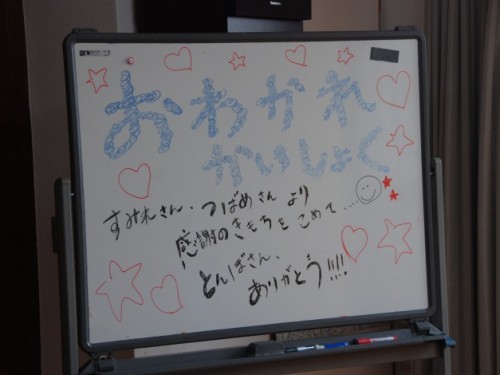 おわかれ
かいしょく
すみれさん、つばめさん より
感謝のきもちを こめて....
とんぼさん、
ありがとう!!!!